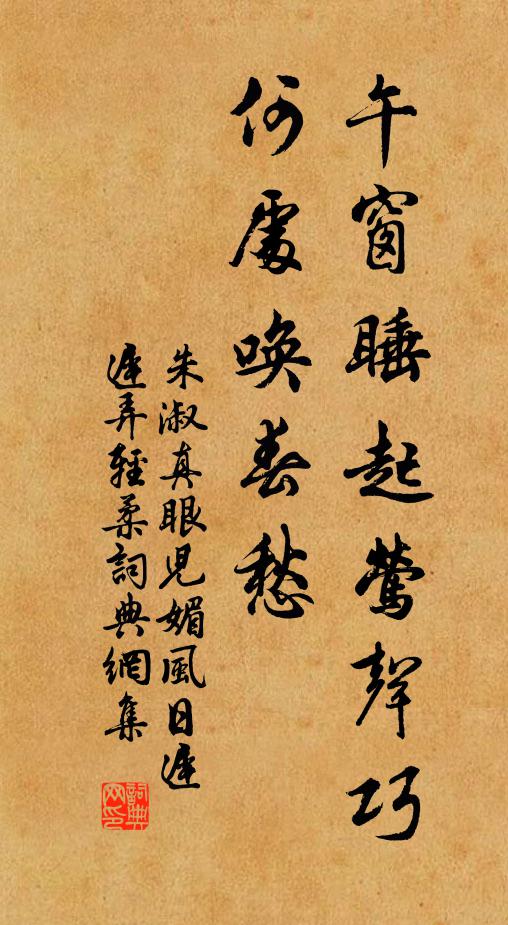 午窗睡起鶯聲巧
何處喚春愁
朱淑真眼兒媚風日遲
遲弄輕柔詞典網集
詞典
网印